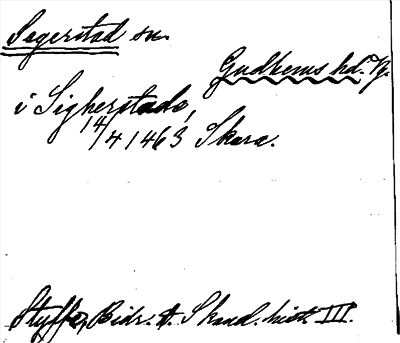 Segerstad sn.
Gudhems hd. Vg.
i Sigherstadə,
14/4 1463 Skara.
Styffe, Bidr. t. Skand. hist. III.